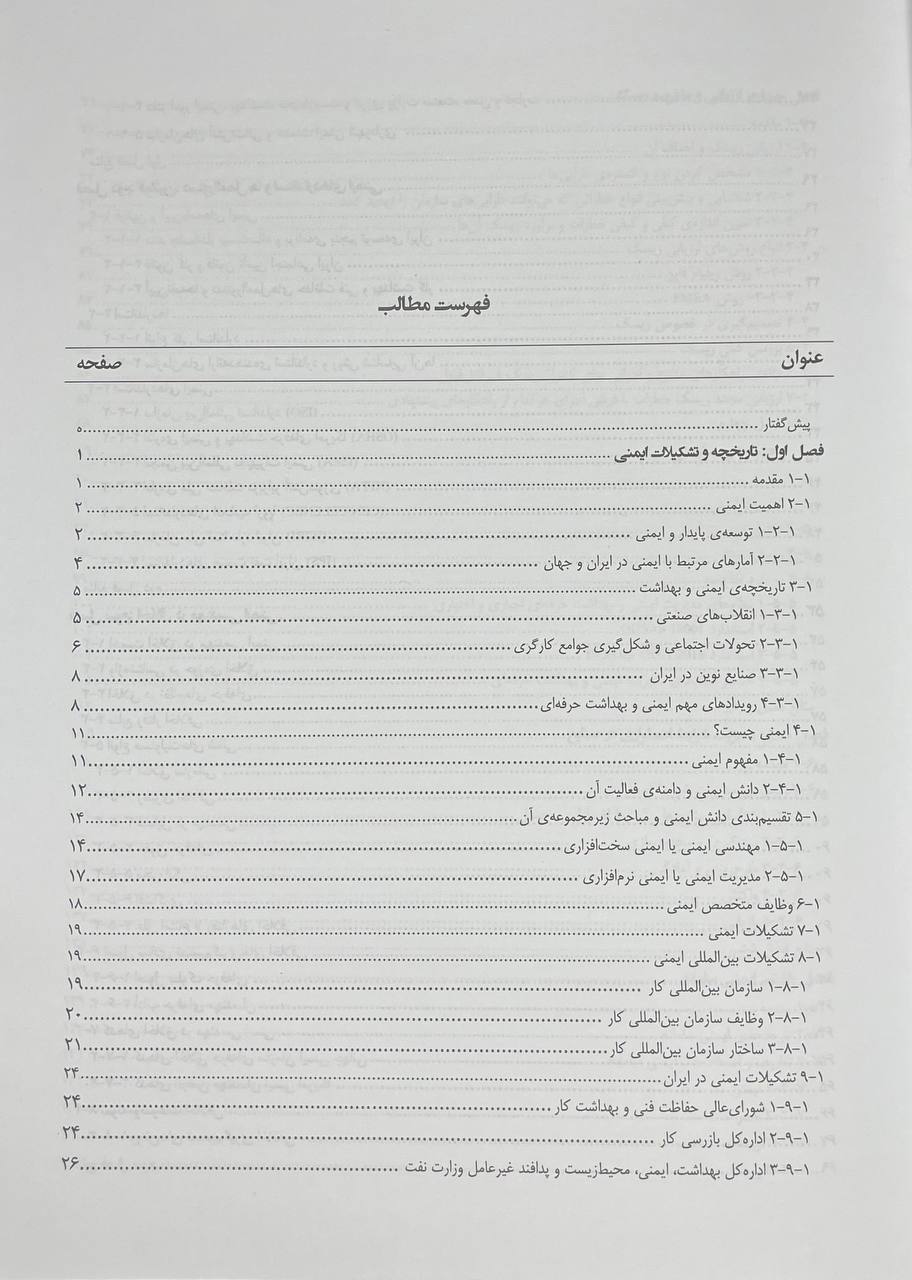 فهرست مطالب
عنوان صفحه
پیش‌گفتار ........ ه
فصل اول: تاریخچه و تشکیلات ایمنی ........ ۱
۱-۱ مقدمه ........ ۱
۱-۲ اهمیت ایمنی ........ ۲
۱-۲-۱ توسعه‌ی پایدار و ایمنی ........ ۲
۱-۲-۲ آمارهای مرتبط با ایمنی در ایران و جهان ........ ۴
۱-۳ تاریخچه‌ی ایمنی و بهداشت ........ ۵
۱-۳-۱ انقلاب‌های صنعتی ........ ۵
۱-۳-۲ تحولات اجتماعی و شکل‌گیری جوامع کارگری ........ ۶
۱-۳-۳ صنایع نوین در ایران ........ ۸
۱-۳-۴ رویدادهای مهم ایمنی و بهداشت حرفه‌ای ........ ۸
۱-۴ ایمنی چیست؟ ........ ۱۱
۱-۴-۱ مفهوم ایمنی ........ ۱۱
۱-۴-۲ دانش ایمنی و دامنه‌ی فعالیت آن ........ ۱۲
۱-۵ تقسیم‌بندی دانش ایمنی و مباحث زیرمجموعه‌ی آن ........ ۱۴
۱-۵-۱ مهندسی ایمنی یا ایمنی سخت‌افزاری ........ ۱۴
۱-۵-۲ مدیریت ایمنی یا ایمنی نرم‌افزاری ........ ۱۷
۱-۶ وظایف متخصص ایمنی ........ ۱۸
۱-۷ تشکیلات ایمنی ........ ۱۹
۱-۸ تشکیلات بین‌المللی ایمنی ........ ۱۹
۱-۸-۱ سازمان بین‌المللی کار ........ ۱۹
۱-۸-۲ وظایف سازمان بین‌المللی کار ........ ۲۰
۱-۸-۳ ساختار سازمان بین‌المللی کار ........ ۲۱
۱-۹ تشکیلات ایمنی در ایران ........ ۲۴
۱-۹-۱ شورای‌عالی حفاظت فنی و بهداشت کار ........ ۲۴
۱-۹-۲ اداره‌کل بازرسی کار ........ ۲۴
۱-۹-۳ اداره‌کل بهداشت، ایمنی، محیط‌زیست و پدافند غیرعامل وزارت نفت ........ ۲۶